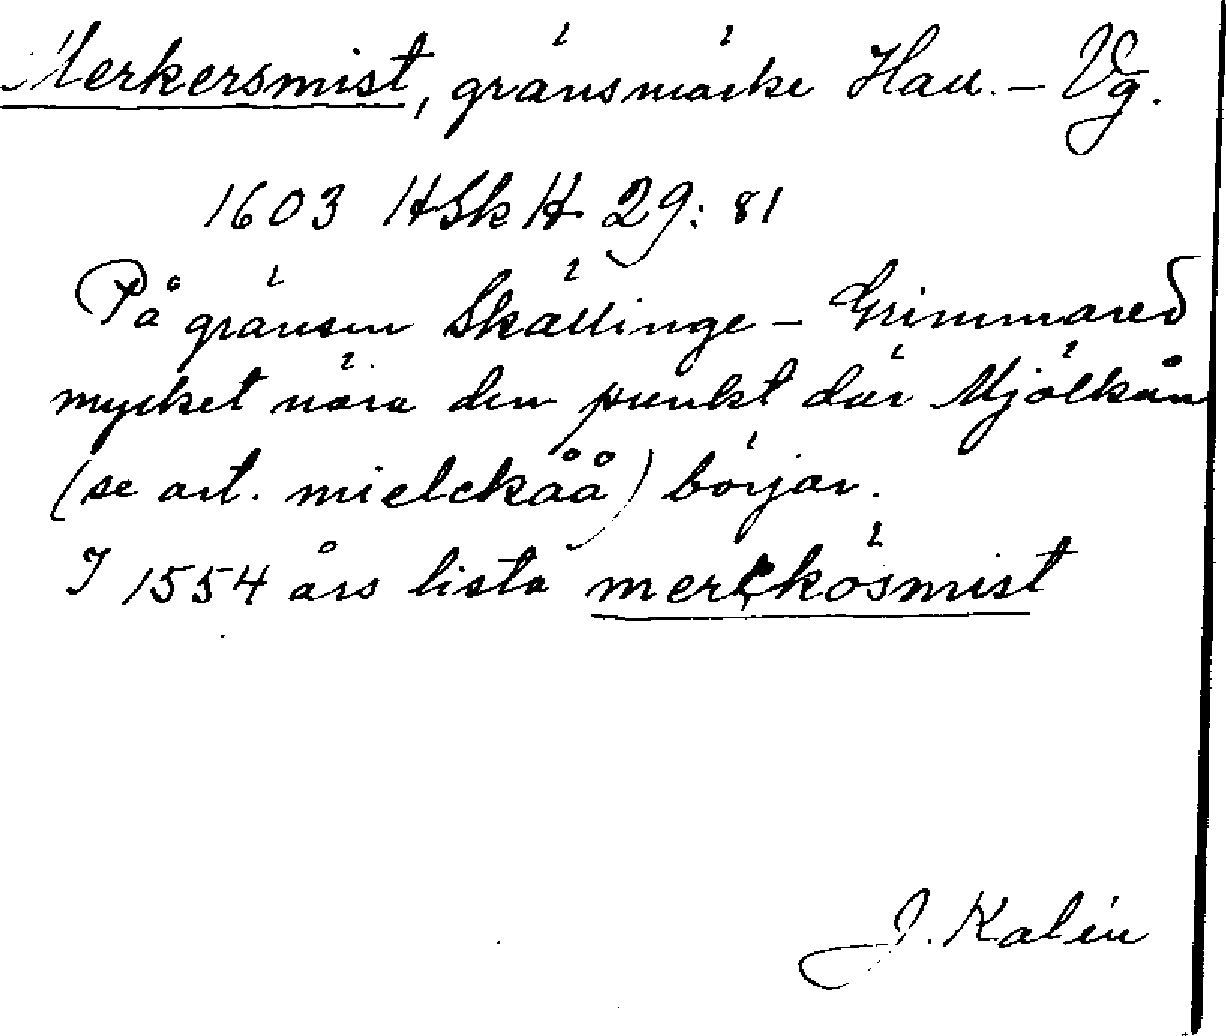 Merkersmist, gränsmärke Hall. – Vg.
1603 HSkH 29:81
På gränsen Skällinge – Grimmared
mycket nära den punkt där Mjölkån
(se art. mielckåå) börjar.
I 1554 års lista merckösmist
J. Kalén